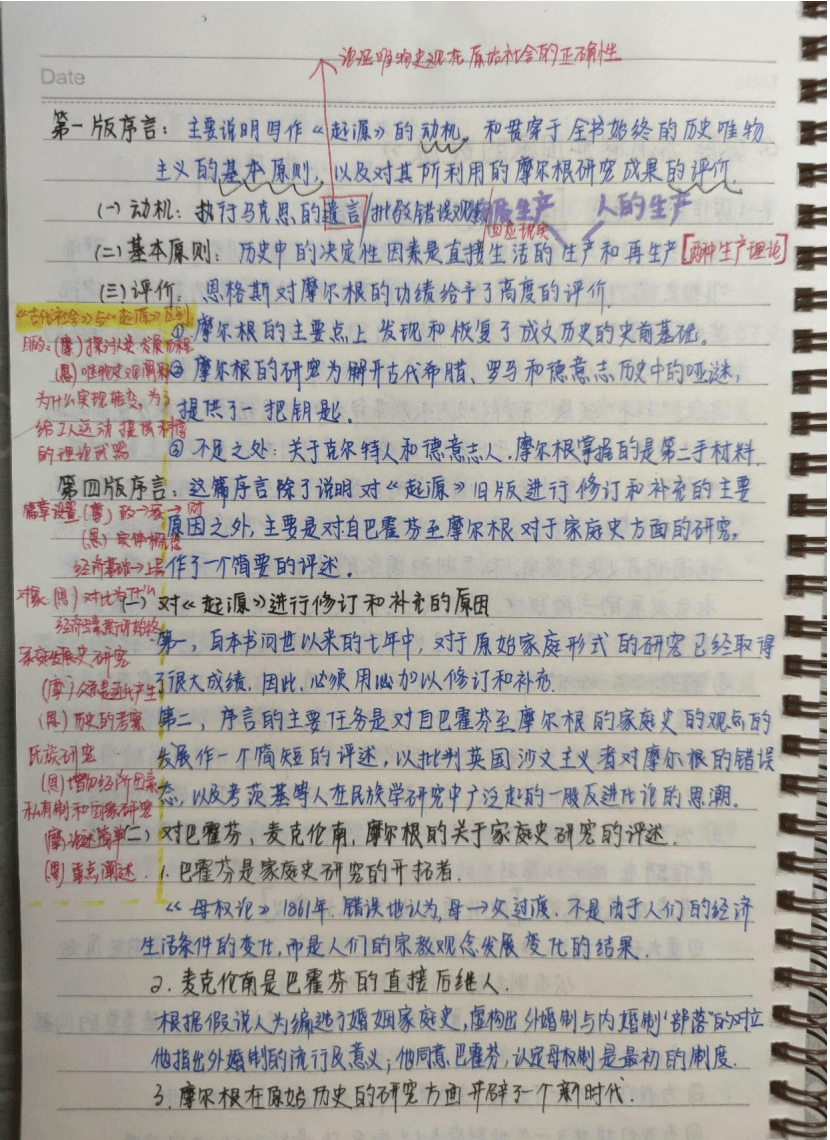 论证唯物史观在原始社会的正确性
Date
第一版序言：主要说明写作《起源》的动机，和贯穿于全书始终的历史唯物
主义的基本原则，以及对其所利用的摩尔根研究成果的评价.
(一) 动机：执行马克思的遗言/批驳错误观
回应现实
生产 人的生产
(二) 基本原则：历史中的决定性因素是直接生活的生产和再生产 [两种生产理论]
(三) 评价：恩格斯对摩尔根的功绩给予了高度的评价.
《古代社会》与《起源》区别
① 摩尔根的主要点上发现和恢复了成文历史的史前基础。
目的：(摩) 探讨人类发展历程
(恩) 唯物史观阐
② 摩尔根的研究为解开古代希腊、罗马和德意志历史中的哑谜，
为什么实现转变，为了
提供了一把钥匙.
给工人运动提供科学
的理论武器
③ 不足之处：关于克尔特人和德意志人，摩尔根掌握的是第二手材料.
第四版序言：这篇序言除了说明对《起源》旧版进行修订和补充的主要
篇章设置 (摩) 政→家→财
原因之外，主要是对自巴霍芬至摩尔根对于家庭史方面的研究，
(恩) 实体
经济基础→上层
作了一个简要的评述.
对象：(恩) 对比
(一) 对《起源》进行修订和补充的原因
经济
第一，自本书问世以来的七年中，对于原始家庭形式的研究已经取得
家庭发展史研究
了很大成绩. 因此，必须用心加以修订和补充.
(摩)
(恩) 历史的考察
第二，序言的主要任务是对自巴霍芬至摩尔根的家庭史的观点的
民族研究
发展作一个简短的评述，以批判英国沙文主义者对摩尔根的错误
(恩) 增加经济因素
态，以及考茨基等人在民族学研究中广泛起的一股反进化论的思潮.
私有制和国家研究
(摩) 论述简单
(二) 对巴霍芬，麦克伦南，摩尔根的关于家庭史研究的评述.
(恩) 重点阐述.
1. 巴霍芬是家庭史研究的开拓者.
《母权论》1861年. 错误地认为，母→父过渡. 不是由于人们的经济
生活条件的变化，而是人们的宗教观念发展变化的结果.
2. 麦克伦南是巴霍芬的直接后继人.
根据假说人为编造了婚姻家庭史，虚构出外婚制与内婚制“部落”的对立
他指出外婚制的流行及意义；他同意巴霍芬，认定母权制是最初的制度.
3. 摩尔根在原始历史的研究方面开辟了一个新时代.